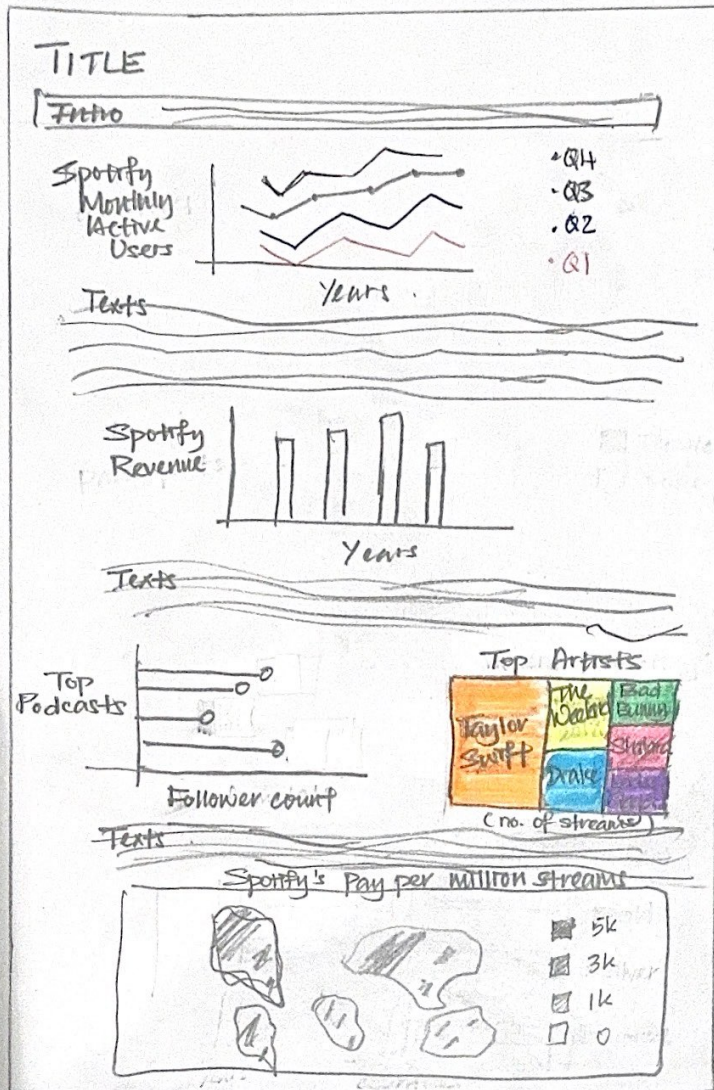 TITLE
Intro
Spotify
Monthly
Active
Users
• Q4
• Q3
• Q2
• Q1
Years
Texts
Spotify
Revenue
Years
Texts
Top
Podcasts
Follower count
Top Artists
Taylor
Swift
The
Weeknd
Drake
Bad
Bunny
(no. of streams)
Texts
Spotify's Pay per million streams
5k
3k
1k
0